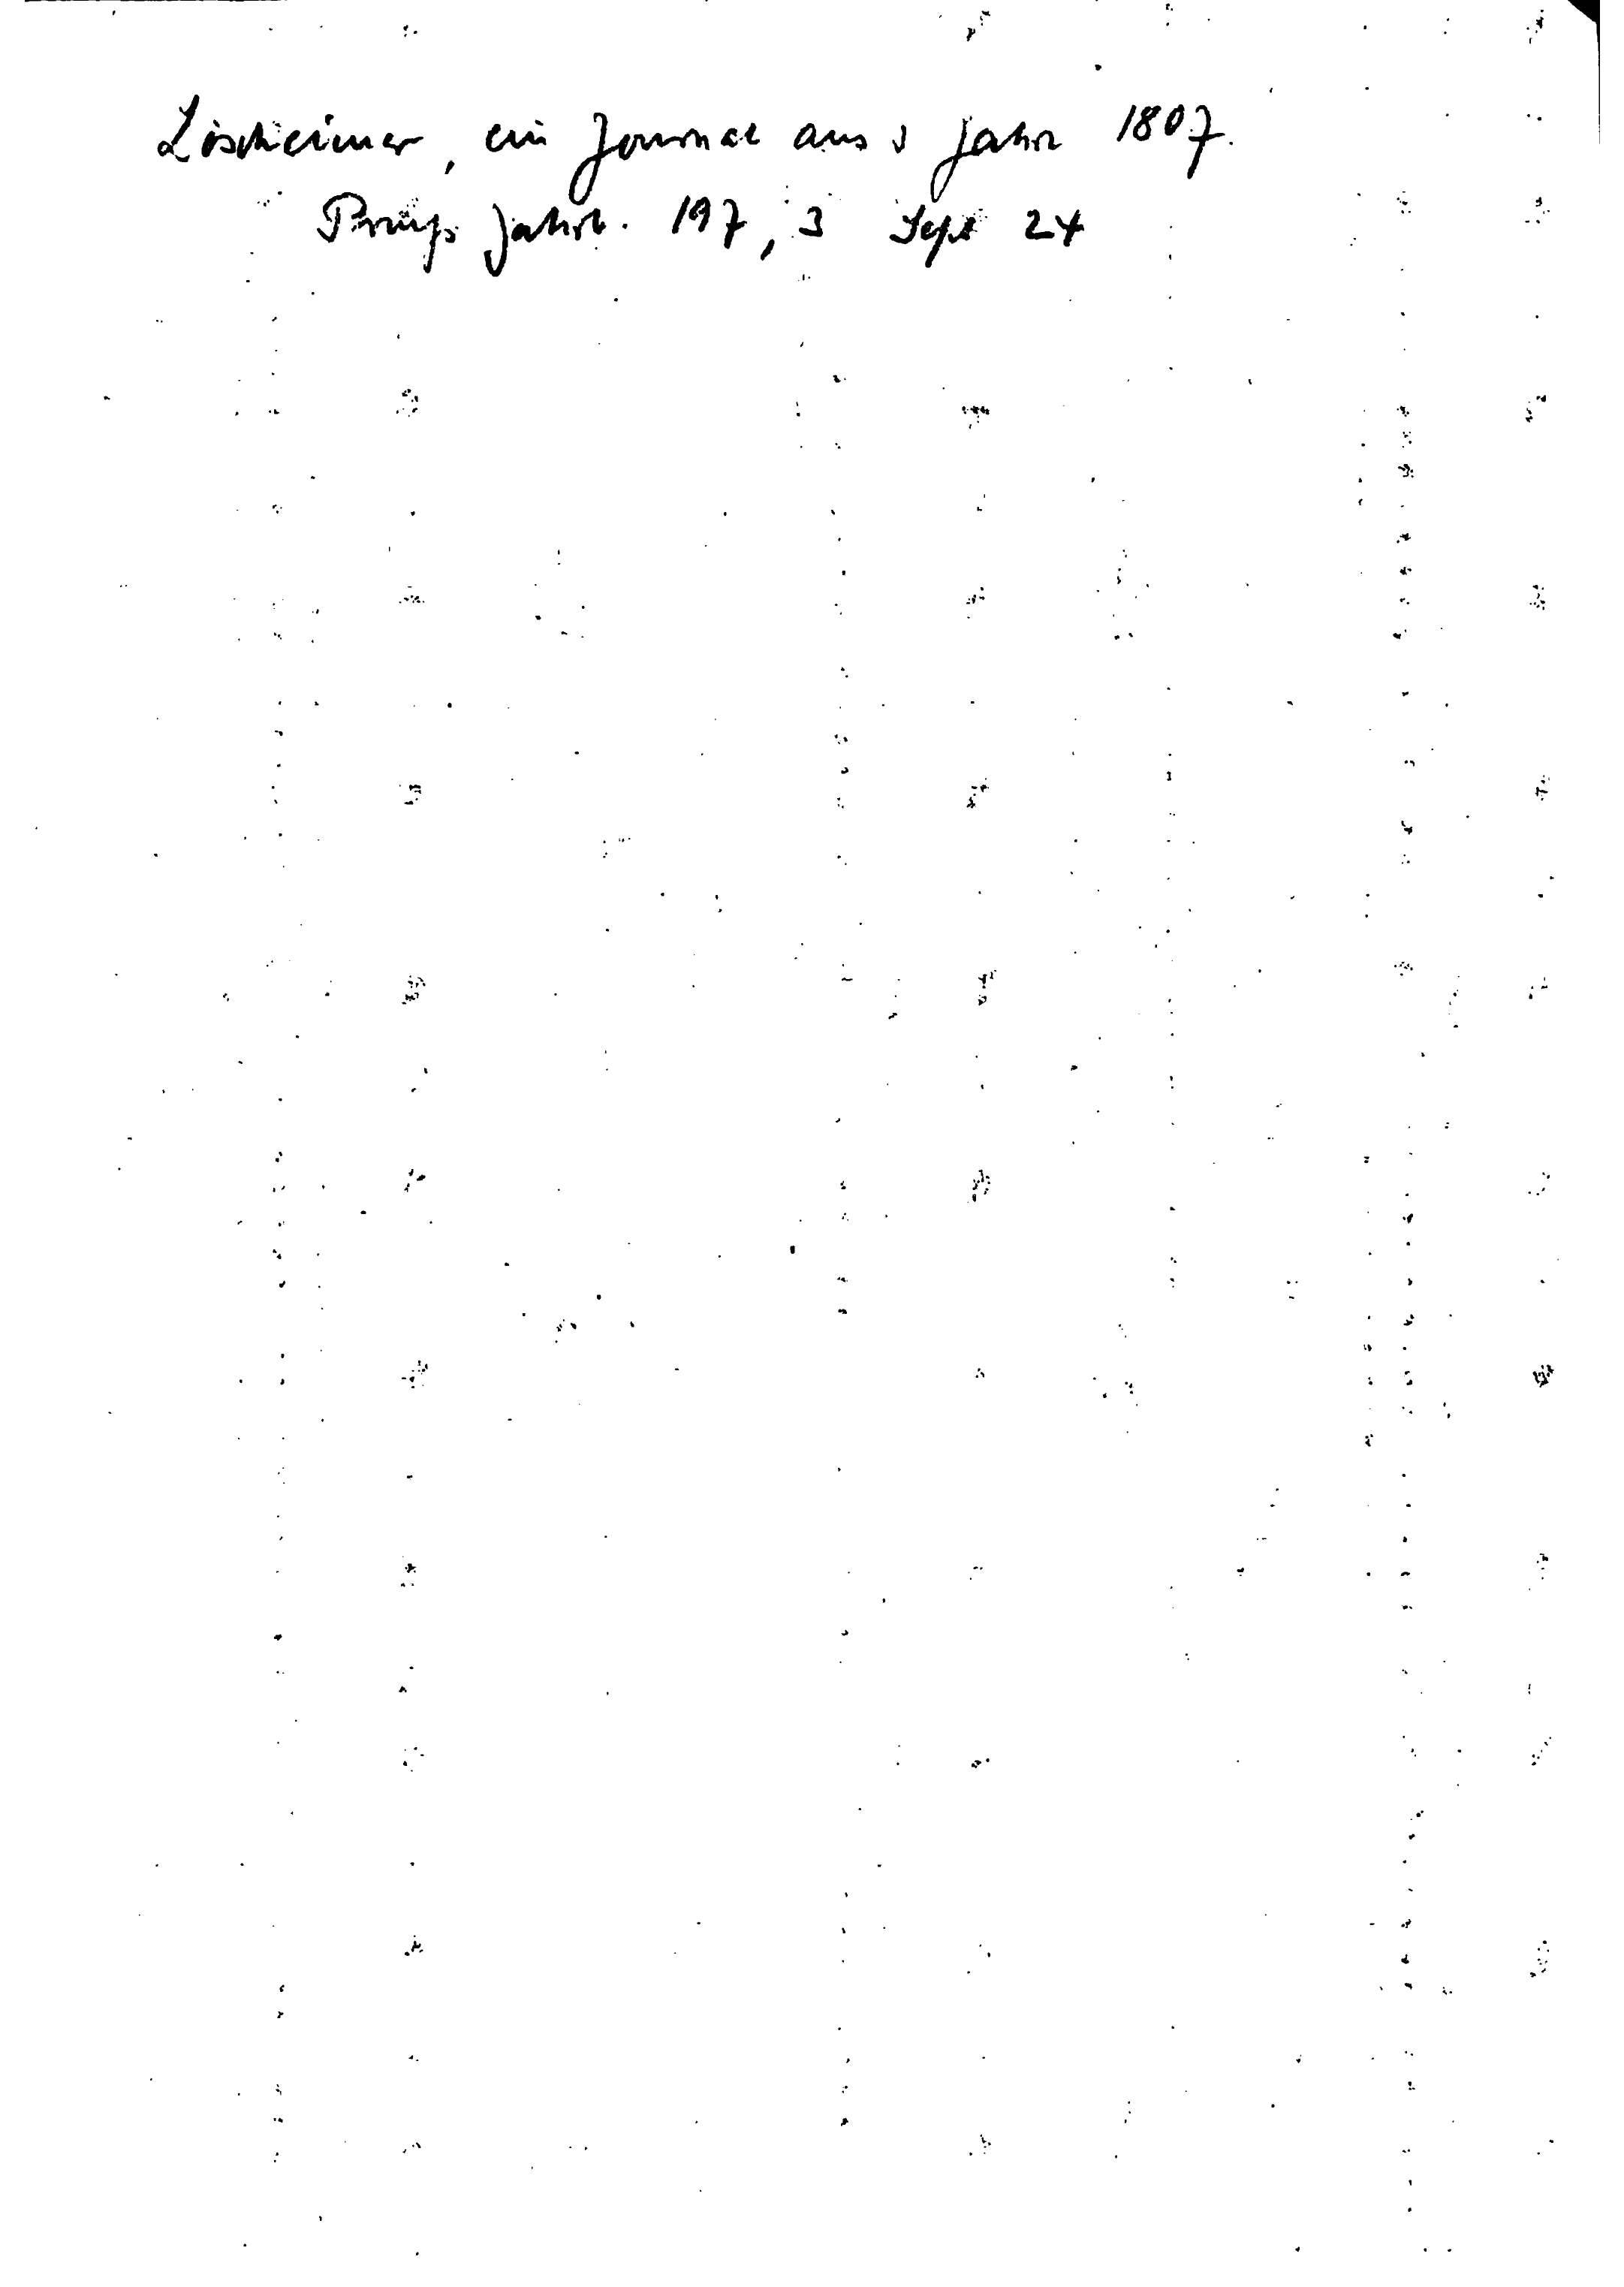 Löscheimer, ein Journal aus d Jahr 1807.
Preuß. Jahrb. 197, 3 Sept 24